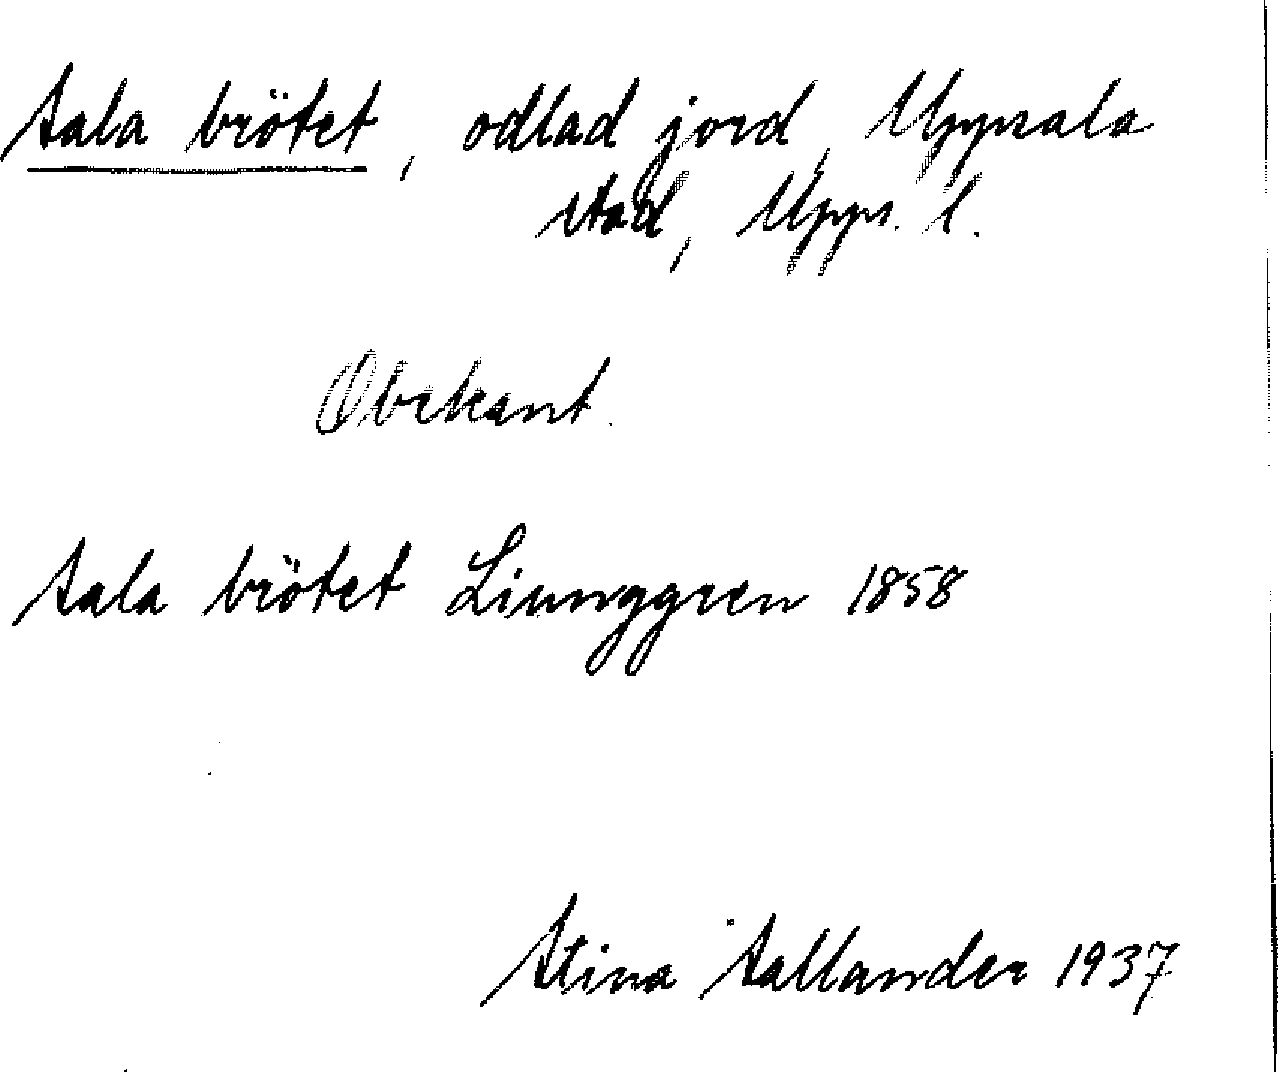 Sala brötet, odlad jord, Uppsala
stad, Upps. l.
Obekant.
Sala brötet Liunggren 1858
Stina Sallander 1937